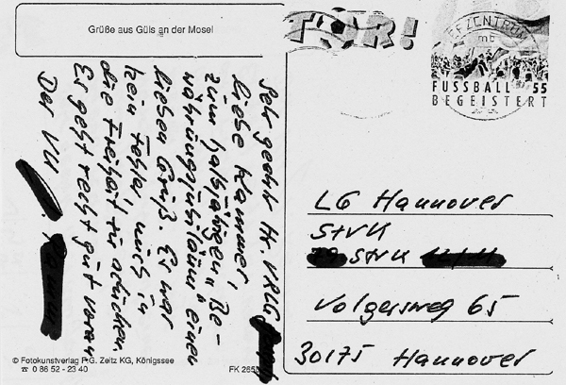 Grüße aus Güls an der Mosel
TOR!
FUSSBALL 55
BEGEISTERT
Sehr geehrte Hr. VRLG
liebe Kammer,
zum halbjährigen „Be-
währungsjubiläum" einen
lieben Gruß. Es war
kein Fehler, mich in
die Freiheit zu schicken.
Es geht recht gut voran
Der VU.
LG Hannover
StVK
StVK
Volgersweg 65
30175 Hannover
© Fotokunstverlag F.G. Zeitz KG, Königssee
☎ 0 86 52 - 23 40
FK